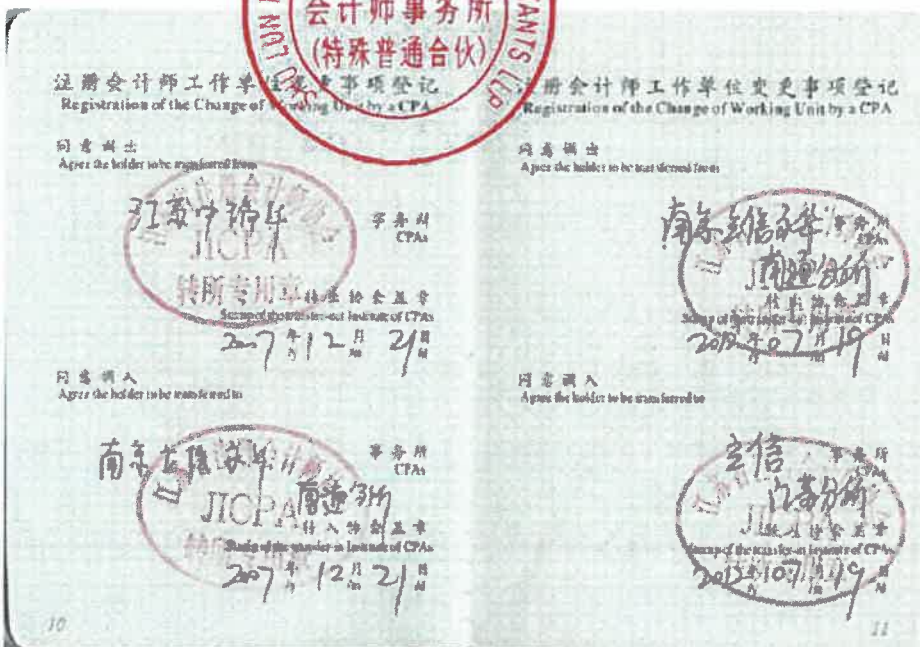 会计师事务所
(特殊普通合伙)
注册会计师工作单位变更事项登记
Registration of the Change of Working Unit by a CPA
同意调出
Agree the holder to be transferred from
事务所
CPAs
JICPA
转所专用章
转出协会盖章
Stamp of the transfer-out Institute of CPAs
2007年12月21日
/y /m /d
同意调入
Agree the holder to be transferred to
南京
事务所
CPAs
南通分所
JICPA
转入协会盖章
Stamp of the transfer-in Institute of CPAs
2007年12月21日
/y /m /d
10
注册会计师工作单位变更事项登记
Registration of the Change of Working Unit by a CPA
同意调出
Agree the holder to be transferred from
南京立信永华
事务所
CPAs
南通分所
转出协会盖章
Stamp of the transfer-out Institute of CPAs
2012年07月19日
/y /m /d
同意调入
Agree the holder to be transferred to
立信
事务所
CPAs
江苏分所
转入协会盖章
Stamp of the transfer-in Institute of CPAs
2012年07月19日
/y /m /d
11